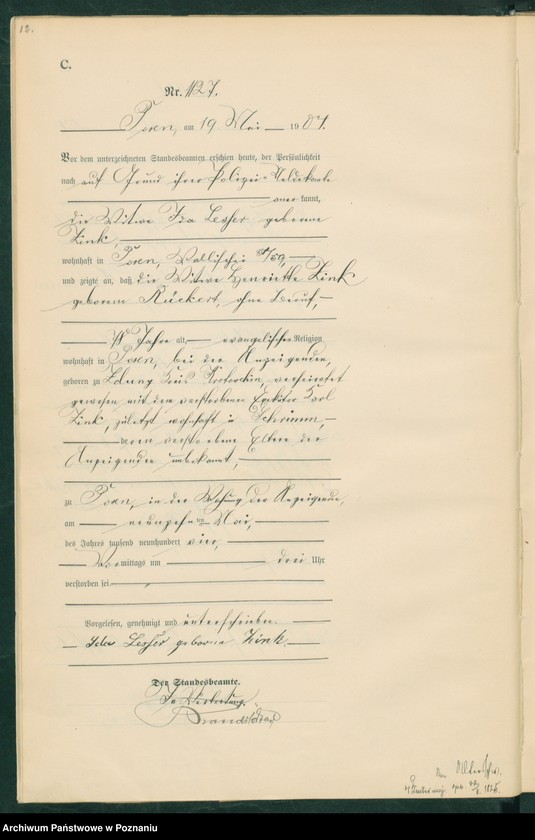 12.
C.
Nr. 1127.
Posen, am 19 Mai 1904.
Vor dem unterzeichneten Standesbeamten erschien heute, der Persönlichkeit
nach auf Grund ihrer Polizei-Meldekarte
aner kannt,
die Witwe Ida Lesser geborene
Zink,
wohnhaft in Posen, Wallischei
und zeigte an, daß die Witwe Henriette Zink
geborene Rückert, ohne Beruf,
Jahre alt, evangelischer Religion
wohnhaft in Posen, bei der Anzeigenden,
geboren zu Kreis Krotoschin, verheiratet
gewesen mit dem verstorbenen Exekutor Karl
Zink, zuletzt wohnhaft in Schrimm,
deren verstorbene Eltern der
Anzeigenden unbekannt,
zu Posen, in der Wohnung der Anzeigenden,
am neunzehnten Mai,
des Jahres tausend neunhundert vier,
Vormittags um drei Uhr
verstorben sei.
Vorgelesen, genehmigt und unterschrieben.
Ida Lesser geborene Zink.
Der Standesbeamte.
In Vertretung.
Archiwum Państwowe w Poznaniu